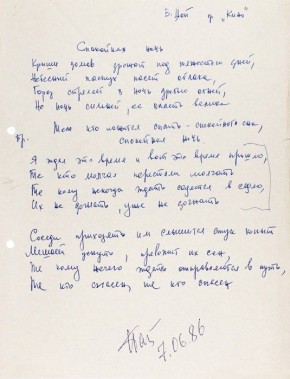 В. Цой гр. „Кино"
Спокойная ночь
Крыши домов дрожат под тяжестью дней,
Небесный пастух пасёт облака,
Город стреляет в ночь дробью огней,
Но ночь сильней, её власть велика
Тем кто ложится спать - спокойного сна,
Пр. спокойная ночь.
Я ждал это время и вот это время пришло,
Те кто молчал перестали молчать
Те кому некогда ждать садятся в седло,
Их не догнать, уже не догнать
Соседи приходят им слышится стук копыт
Мешает уснуть, тревожит их сон,
Те кому нечего ждать отправляются в путь,
Те кто спасён, те кто спасён
7.06.86